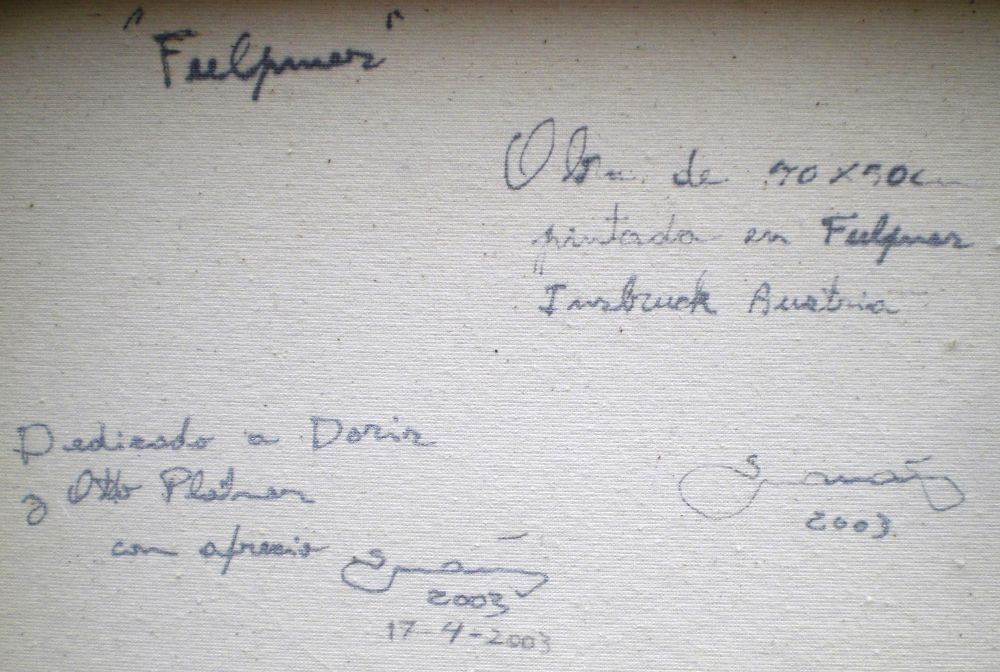 "Fulpmes"
Obra de 70x50cm
pintada en Fulpmes
Insbruck Austria
Dedicado a Doris
y Otto Platner
con aprecio
2003
17-4-2003
2003